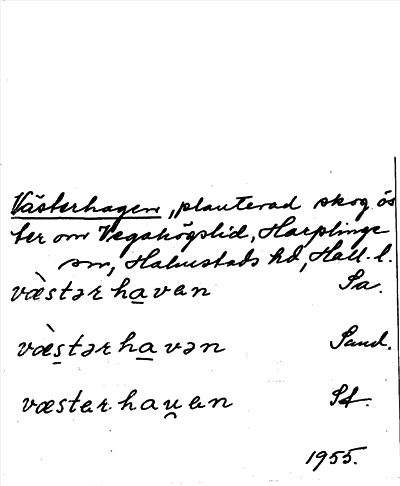 Västerhagen, planterad skog ös
ter om Vegahögslid, Harplinge
sn, Halmstads hd, Hall. l.
væ̀stərhaven Sa.
væ̀stərhavən Sand.
væsterhau̯en Sf.
1955.